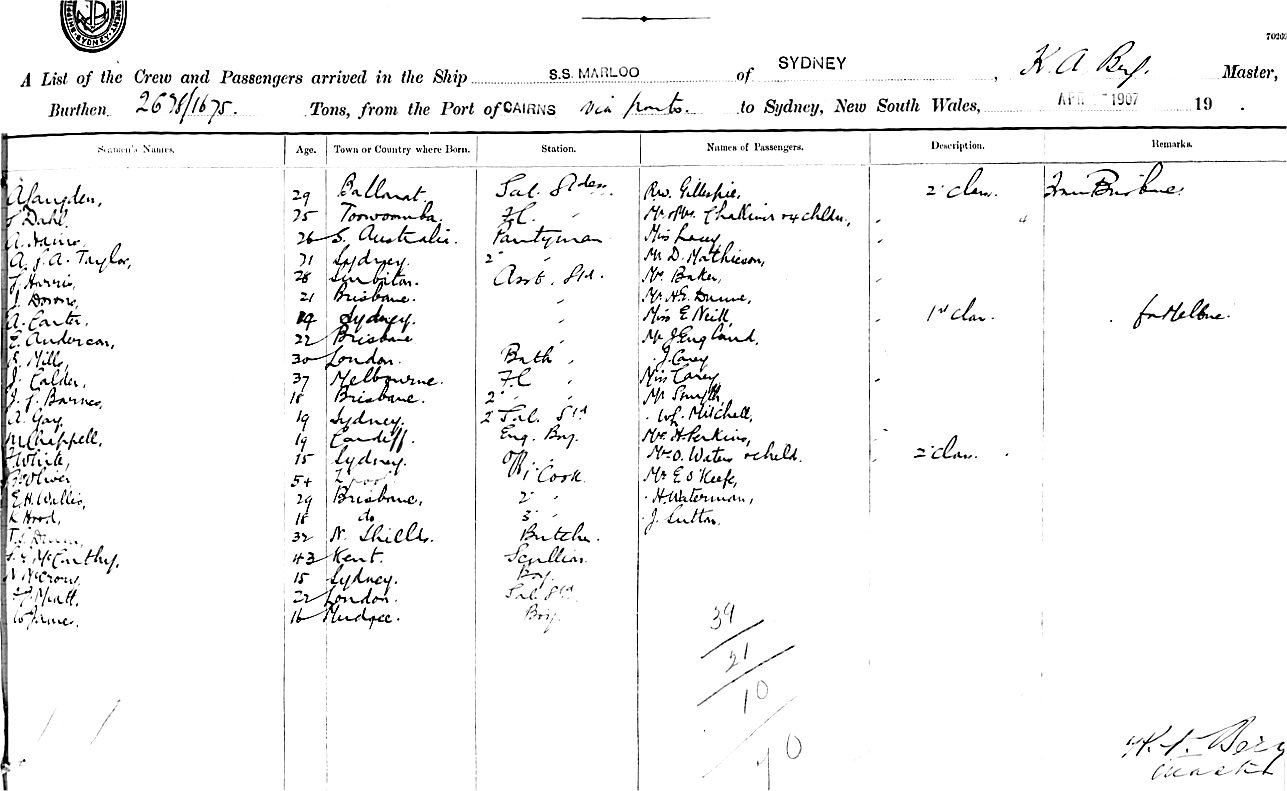 SYDNEY
70203
A List of the Crew and Passengers arrived in the Ship S.S. MARLOO of SYDNEY, K. A. Berg. Master,
Burthen 2628/1675. Tons, from the Port of CAIRNS via ports. to Sydney, New South Wales, APR 7 1907 19 .
Seamen's Names. Age. Town or Country where Born. Station. Names of Passengers. Description. Remarks.
29 Ballarat Sal. Rw. Gillespie, 2 class. From Brisbane.
J Dahl. 25 Toowoomba. F.C. " Mr & Mrs. Chalkins & 4 chldn,
26 S. Australia. Pantryman Miss Lacey
A. J. A. Taylor, 31 Sydney. 2 " Mr D. Mathieson,
J Harris, 28 Surbiton. Asst. Std. Mr. Baker,
J. Downs, 21 Brisbane. " Mr. H.E. Dunne,
A. Carter, 19 Sydney. " Miss E Neill, 1st clas. for Melbne.
E. Anderson, 22 Brisbane " Mr J England,
E. Mills, 30 London. Bath " " J. Carey
J. Calder, 37 Melbourne. F.C. " Miss Carey
J. J. Barnes, 18 Brisbane. 2 " " Mr Smyth
A. Gay, 19 Sydney. 2 Sal. Std " W. Mitchell,
M Chappell, 19 Cardiff. Eng. Boy. Mr. H. Perkins,
J White, 15 Sydney. Off. " Mrs O. Waters & child. 2 clas.
Oliver, 54 1 Cook. Mr E O'Keefe,
E. H. Wallis, 29 Brisbane, 2 " " H. Waterman,
K Hood, 18 do 3 " " J. Sutton.
32 N. Shields. Butcher.
McCarthy, 43 Kent. Scullion.
15 Sydney. Boy.
22 London. Sal Std.
W James. 16 Mudgee. Boy.
39
21
10
70
K. A. Berg
Master